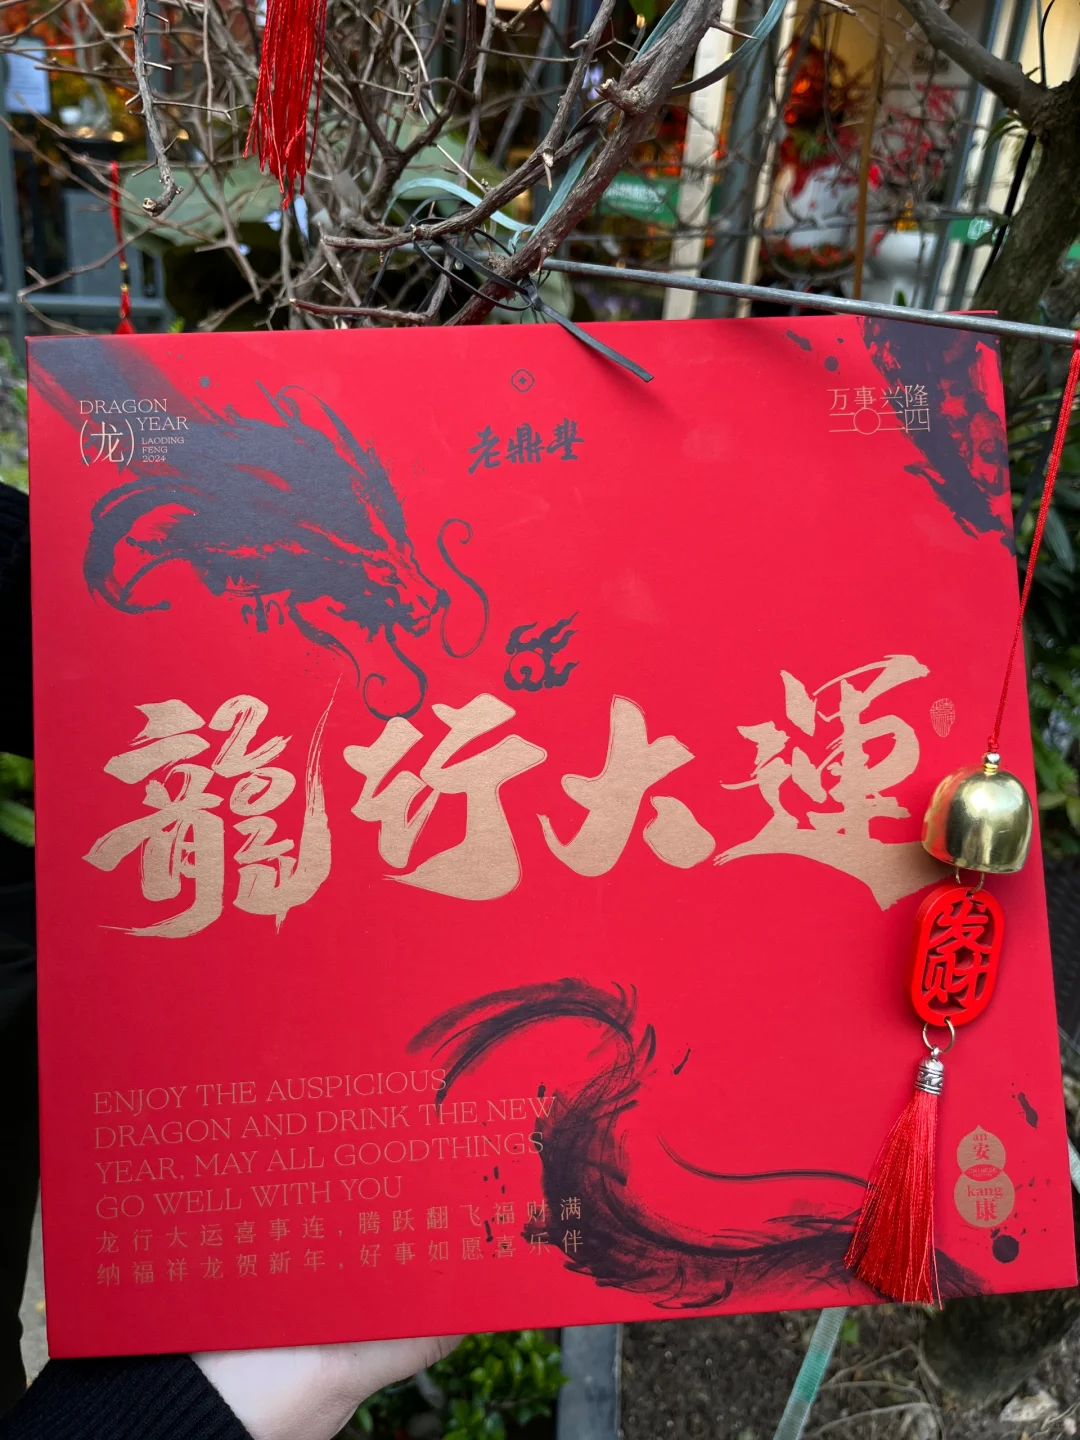 DRAGON
YEAR
(龙)
LAODING
FENG
2024
老鼎豐
万事兴隆
二〇二四
龍行大運
发财
ENJOY THE AUSPICIOUS
DRAGON AND DRINK THE NEW
YEAR, MAY ALL GOODTHINGS
GO WELL WITH YOU
龙行大运喜事连,腾跃翻飞福财满
纳福祥龙贺新年,好事如愿喜乐伴
an
安
kang
康